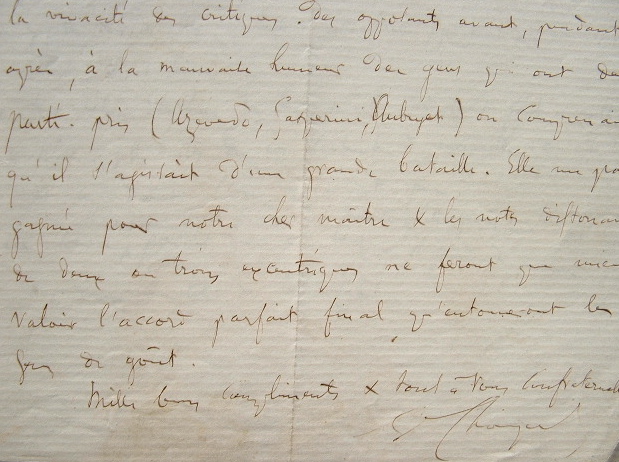 la vivacité des critiques. Des opposants avant, pendant
après, à la mauvaise humeur des gens qui ont du
parti-pris (Azevedo, Gasperini, Aubryet) on comprenai
qu'il s'agissait d'une grande bataille. Elle me pa
gagnée pour notre cher maître & les notes distonan
de deux ou trois excentriques ne feront que mieu
valoir l'accord parfait final qu'entonneront les
gens de goût.
Mille bons compliments & tout à vous confraternel